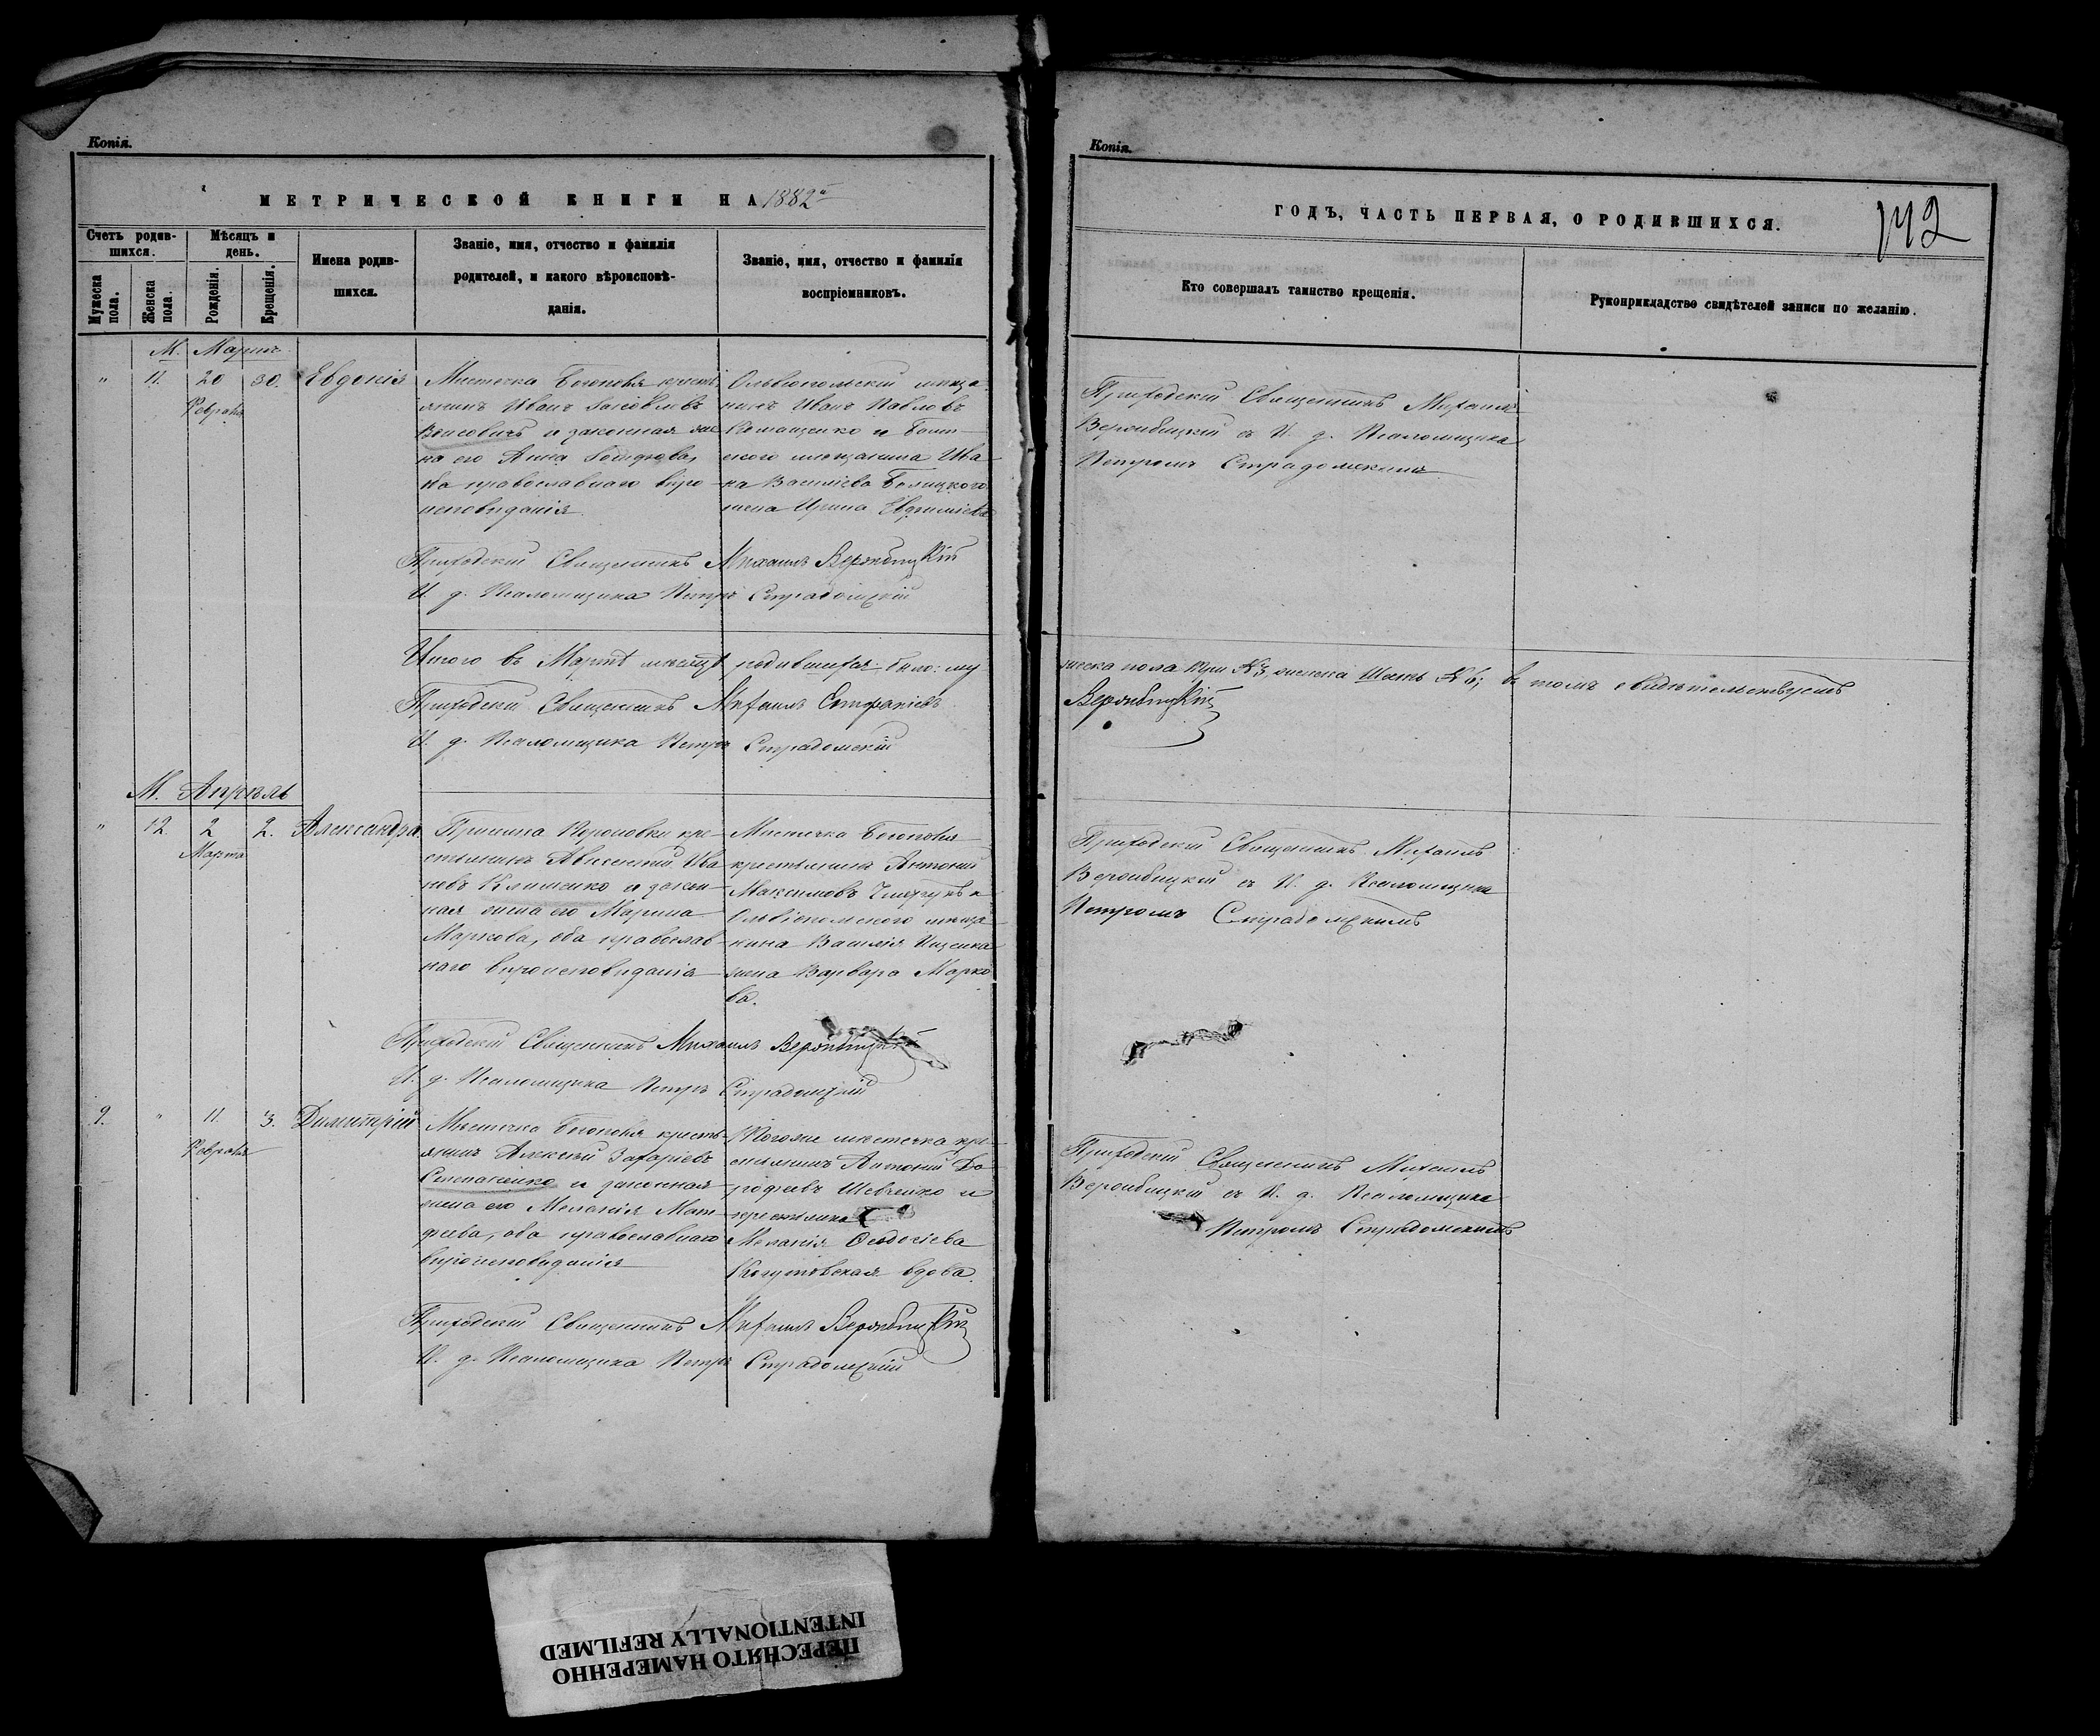 Копія.
МЕТРИЧЕСКОЙ КНИГИ НА 1882й
Счетъ родив-
шихся.
Мѣсяцъ и
день.
Мужеска
пола.
Женска
пола.
Рожденія.
Крещенія.
Имена родив-
шихся.
Званіе, имя, отчество и фамилія
родителей, и какого вѣроисповѣ-
данія.
Званіе, имя, отчество и фамилія
воспріемниковъ.
М. Мартъ
" 11. 20 30. Евдокія
Февраля
Мѣстечка Богополя кресть
янинъ Иванъ
и законная же
на его Анна
ва православнаго вѣро
исповѣданія
Ольвіопольскій мѣща
нинъ Иванъ Павловъ
Романценко и
скаго мѣщанина Ива
на Василіева
жена Ирина Евфиміева
Приходскій Священникъ Михаилъ Вербицкій
И. д. Псаломщика Петръ Страдомскій
Итого въ Мартѣ мѣсяцѣ родившихся было: му
Приходскій Священникъ Михаилъ Стефаніевъ
И. д. Псаломщика Петръ Страдомскій
М. Апрѣль
" 12. 2 2. Александра
Марта
кре
стьянинъ Авксентій Ива
новъ Клименко и закон
ная жена его Марина
Маркова, оба православ
наго вѣроисповѣданія
Мѣстечка Богополя
крестьянинъ Антоній
Максимовъ и
Ольвіопольскаго мѣща
нина Василія Ищенка
жена Варвара Марко
ва.
Приходскій Священникъ Михаилъ Вербицкій
И. д. Псаломщика Петръ Страдомскій
9. " 11. 3. Димитрій
Февраля
Мѣстечка Богополя кресть
янинъ Алексѣй Захаріевъ
Степаненко и законная
жена его Меланія Мат
феева, оба православнаго
вѣроисповѣданія
Тогоже мѣстечка кре
стьянинъ Антоній До
рофеевъ Шевченко и
крестьянка
Меланія Феодосіева
вдова.
Приходскій Священникъ Михаилъ Вербицкій
И. д. Псаломщика Петръ Страдомскій
Копія.
ГОДЪ, ЧАСТЬ ПЕРВАЯ, О РОДИВШИХСЯ.
142
Кто совершалъ таинство крещенія.
Рукоприкладство свидѣтелей записи по желанію.
Приходскій Священникъ Михаилъ
Вербицкій съ И. д. Псаломщика
Петромъ Страдомскимъ
жеска пола три № 3, женска шесть № 6; въ томъ свидѣтельствуемъ
Вербицкій
Приходскій Священникъ Михаилъ
Вербицкій съ И. д. Псаломщика
Петромъ Страдомскимъ
Приходскій Священникъ Михаилъ
Вербицкій съ И. д. Псаломщика
Петромъ Страдомскимъ
ПЕРЕСНЯТО НАМЕРЕННО
INTENTIONALLY REFILMED